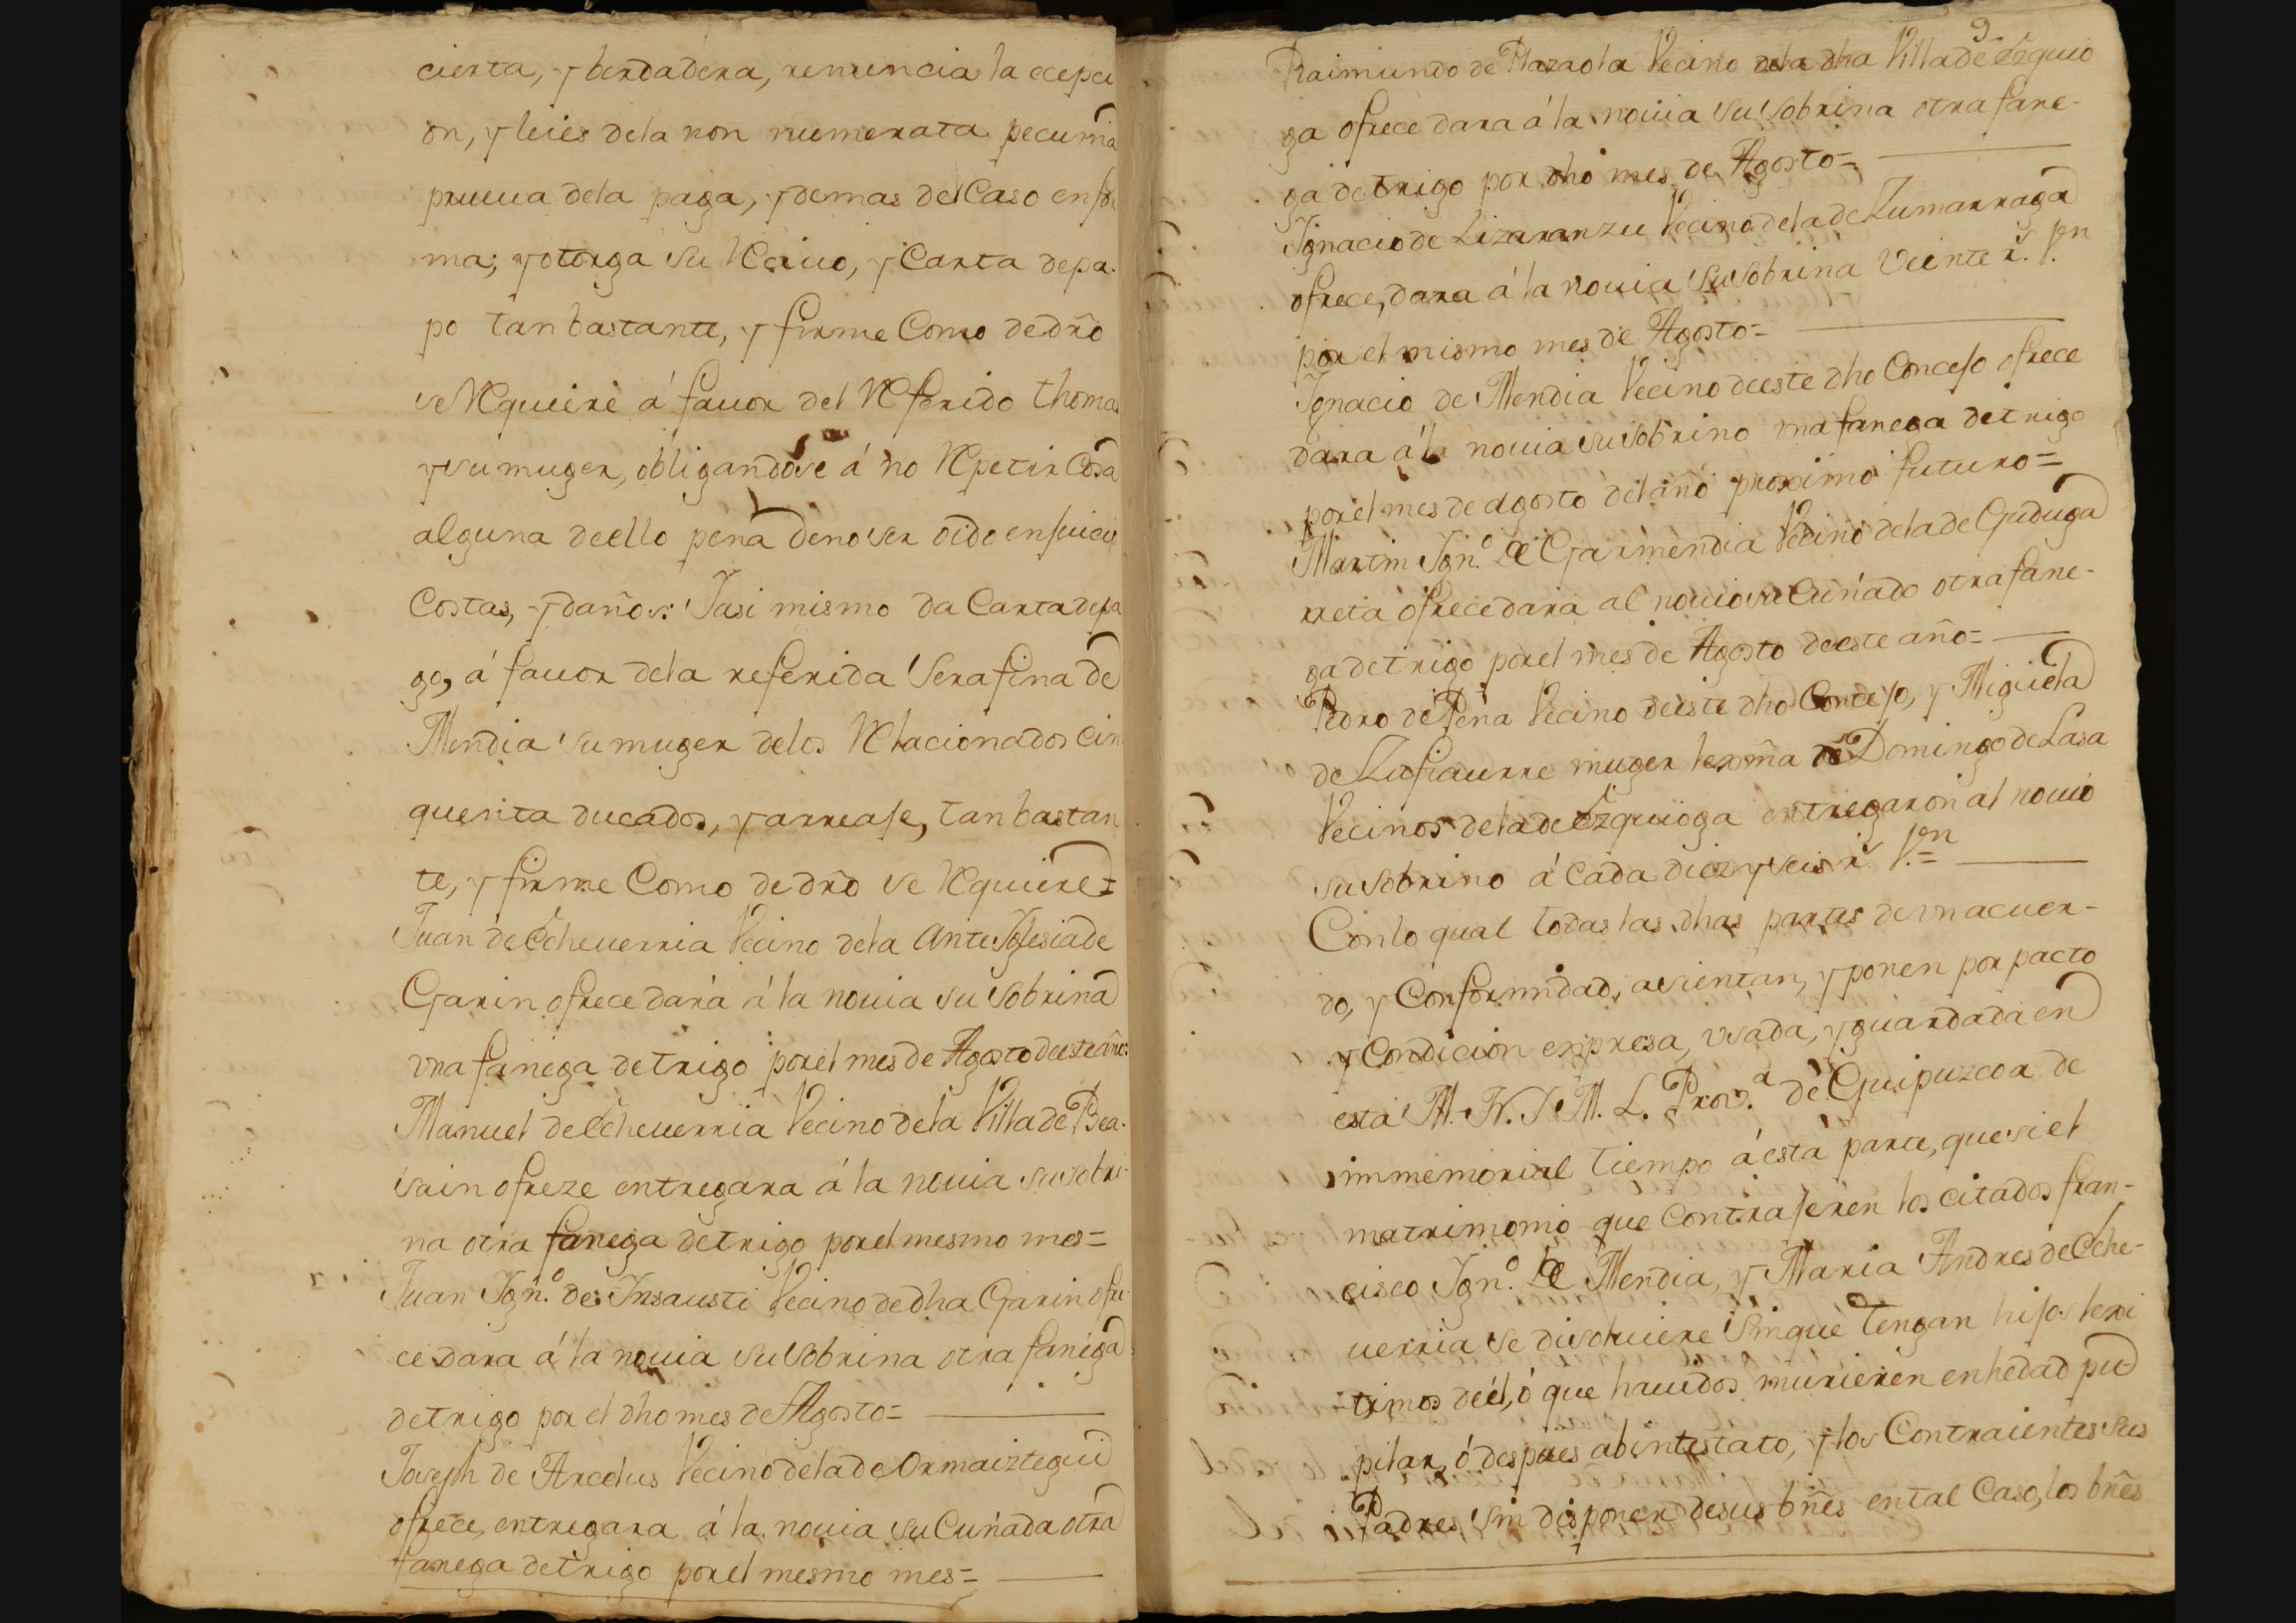 cierta, y berdadera, renuncia la ecepci
on, y leies dela non numerata pecunia
prueua dela paga, y demas del Caso enfor
ma; y otorga su Reciuo, y Carta depa.
po tan bastante, y firme Como de dr̃o
se Requiere á fauor del Referido thomas
y su muger, obligandose á no Repetir Cosa
alguna deello pena deno ser oido enjuicio
Costas, y daños: Yasi mismo da Carta depa
go, á fauor dela referida Serafina de
Mendia su muger delos Relacionados cin
quenta ducados, y arreaje, tan bastan
te, y firme Como de dr̃o se Requiere=
Juan de Echeuerria Vecino dela Ante Yglesia de
Garin ofrece dará á la nouia su Sobrina
vna fanega detrigo porel mes de Agosto deeste año=
Manuel de Echeuerria Vecino dela Villa de Bea-
sain ofreze entregara á la nouia su sobri-
na otra fanega detrigo porel mesmo mes=
Juan Ygn.º de Insausti Vecino de dha Garin ofre-
ce dara á la nouia su Sobrina otra fanega
detrigo por el dho mes de Agosto=
Joseph de Arcelus Vecino dela de Ormaiztegui
ofrece, entregara á la nouia su Cuñada otra
fanega detrigo porel mesmo mes=
9
Raimundo de Plazaola Vecino dela dha Villa de Ezquio
ga ofrece dara á la nouia su Sobrina otra fane-
ga detrigo por dho mes de Agosto=
Ygnacio de Lizaranzu Vecino dela de Zumarraga
ofrece, dara á la nouia su Sobrina Veinte r.s v.on
por el mismo mes de Agosto=
Ygnacio de Mendia Vecino deeste dho Concejo ofrece
dara á la nouia su Sobrino vna fanega detrigo
porel mes de agosto del año proximo futuro=
Martin Ygn.º de Garmendia Vecino dela de Guduga
rreta ofrece dara al nouio su Cuñado otra fane-
ga detrigo porel mes de Agosto deeste año=
Pedro de Peña Vecino deeste dho Concejo, y Miguela
de Zufiaurre muger lexma de Domingo de Lasa
Vecinos dela de Ezquioga entregaron al nouio
su Sobrino á Cada diez y seis r.s v.on=
Con lo qual todas las dhas partes de vn acuer-
do, y Conformidad, asientan, y ponen por pacto
y Condicion expresa, vsada, y guardada en
esta M. N. Y M. L. Prov.a de Guipuzcoa de
immemorial tiempo á esta parte, que si el
matrimonio que Contrajeren los citados fran-
cisco Ygn.º de Mendia, y Maria Andres de Eche-
uerria se disoluiere Sinque tengan hijos lexi
timos deél, ó que hauidos murieren en hedad pu
pilar, ó despues abintestato, y los Contraientes sus
Padres, sin disponer desus bñes ental Caso, los bñes